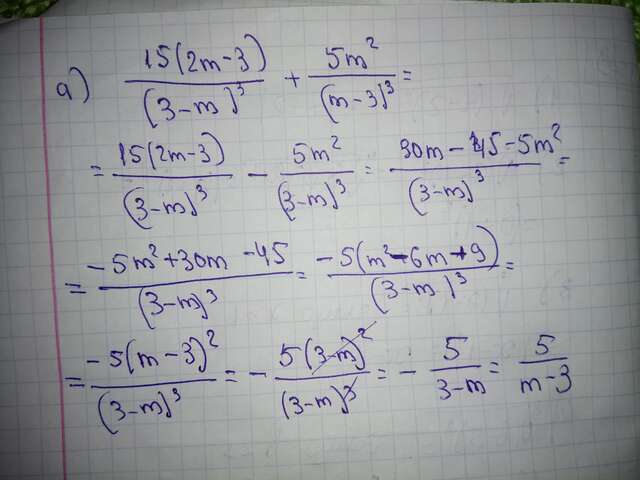 а) 15(2m-3)/(3-m)³ + 5m²/(m-3)³ =
= 15(2m-3)/(3-m)³ - 5m²/(3-m)³ = 30m-45-5m²/(3-m)³ =
= -5m²+30m-45/(3-m)³ = -5(m²-6m+9)/(3-m)³ =
= -5(m-3)²/(3-m)³ = - 5(3-m)²/(3-m)³ = - 5/3-m = 5/m-3